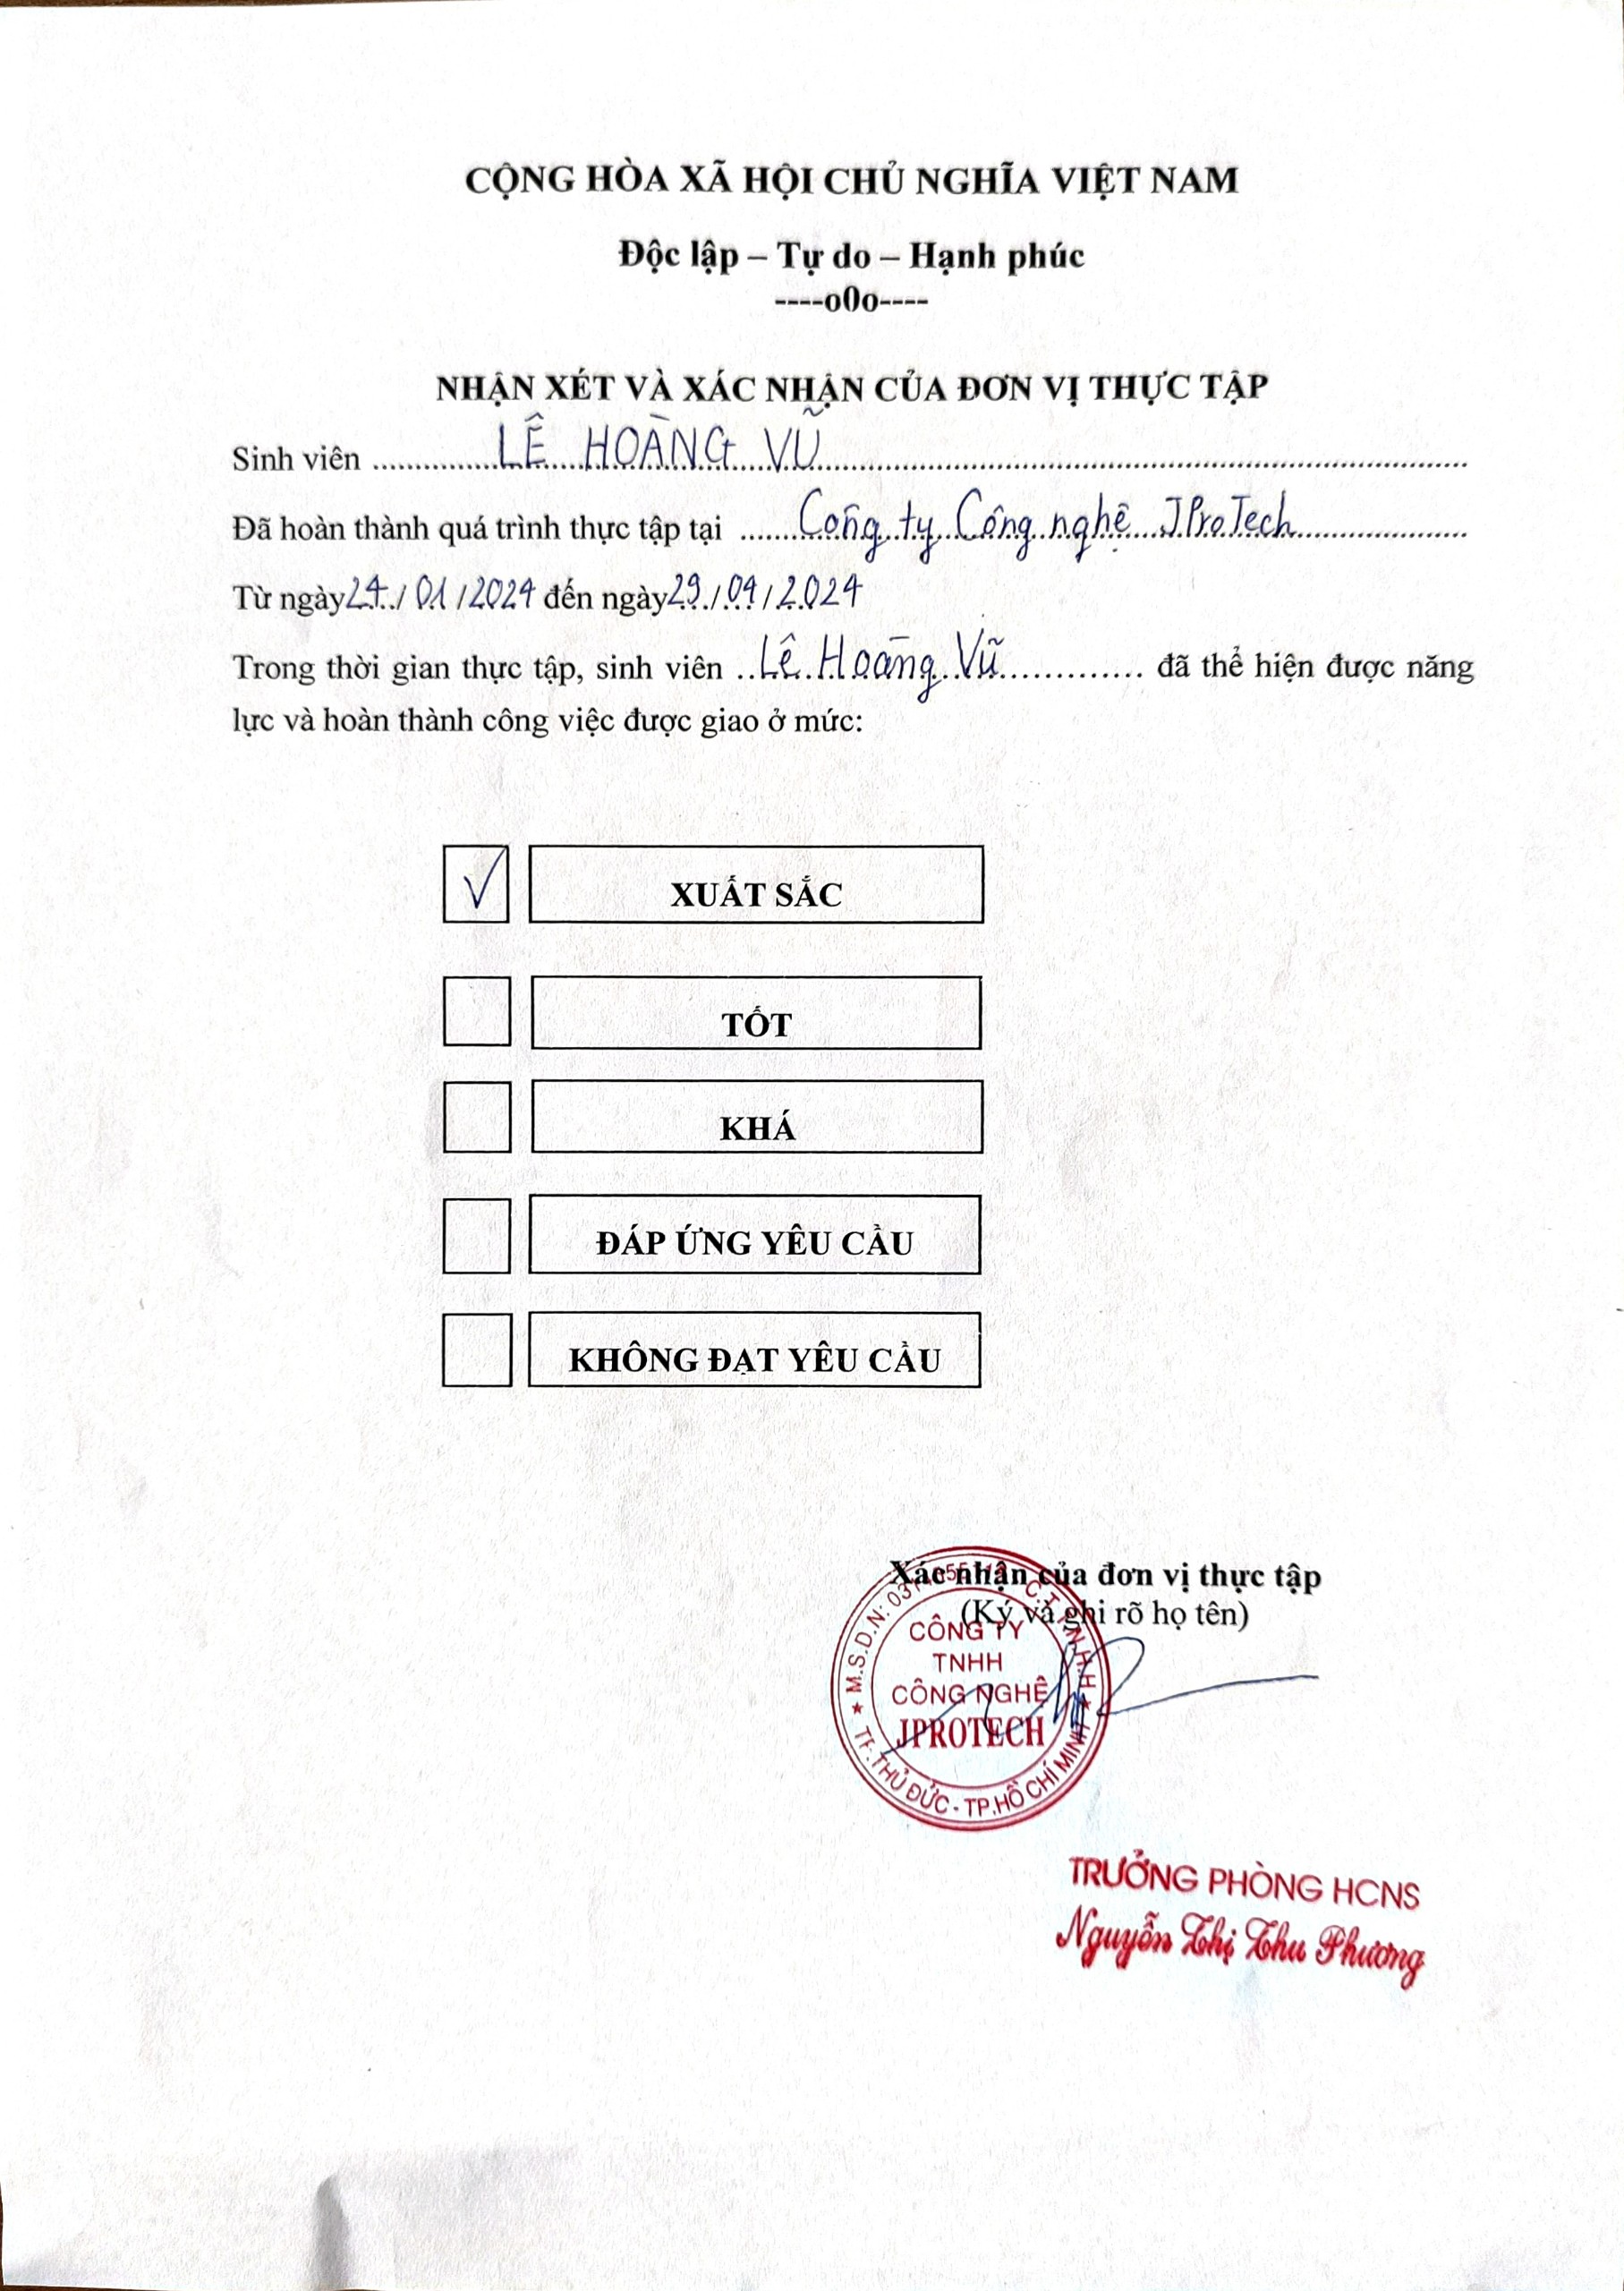 CỘNG HÒA XÃ HỘI CHỦ NGHĨA VIỆT NAM
Độc lập – Tự do – Hạnh phúc
----o0o----
NHẬN XÉT VÀ XÁC NHẬN CỦA ĐƠN VỊ THỰC TẬP
Sinh viên LÊ HOÀNG VŨ
Đã hoàn thành quá trình thực tập tại Công ty Công nghệ JProTech
Từ ngày 24/01/2024 đến ngày 29/04/2024
Trong thời gian thực tập, sinh viên Lê Hoàng Vũ đã thể hiện được năng
lực và hoàn thành công việc được giao ở mức:
√ XUẤT SẮC
TỐT
KHÁ
ĐÁP ỨNG YÊU CẦU
KHÔNG ĐẠT YÊU CẦU
Xác nhận của đơn vị thực tập
(Ký và ghi rõ họ tên)
M.S.D.N: C.T.T.N.H.H
CÔNG TY
TNHH
CÔNG NGHỆ
JPROTECH
TP.THỦ ĐỨC - TP.HỒ CHÍ MINH
TRƯỞNG PHÒNG HCNS
Nguyễn Thị Thu Phương